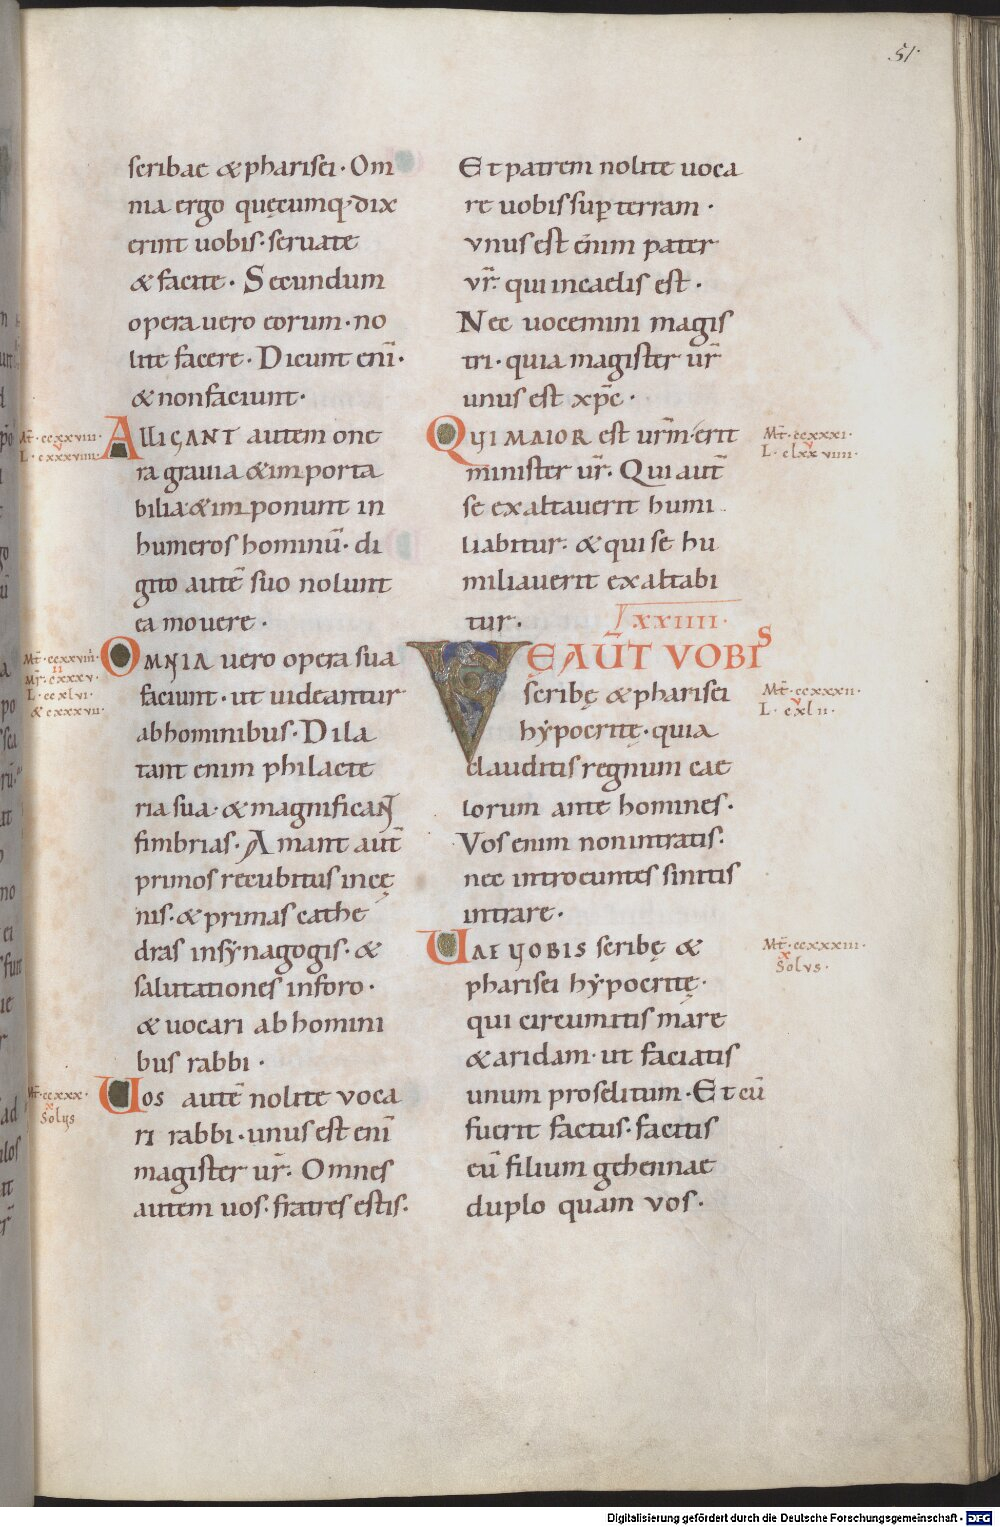 51
scribae & pharisei · Om
nia ergo quęcumq · dix
erint uobis · seruate
& facite · Secundum
opera uero eorum · no
lite facere · Dicunt eni̅ ·
& non faciunt ·
Mt̅ · ccxxviiii ·
L · cxxxviiii ·
ALLIGANT autem one
ra grauia & im porta
bilia · & im ponunt in
humeros hominu̅ · di
gito aute̅ suo nolunt
ea mouere ·
OMNIA uero opera sua
L · ccxlvi ·
& cxxxvii ·
faciunt · ut uideantur
ab hominibus · Dila
tant enim philacte
ria sua · & magnifican̅
fimbrias · Amant aut̅
primos recubitus in cę
nis · & primas cathe
dras in sẏnagogis · &
salutationes in foro ·
& uocari ab homini
bus rabbi ·
Mt̅ · ccxxx ·
x
Solus
Uos aute̅ nolite voca
ri rabbi · unus est eni̅
magister ur̅ · Omnes
autem uos · fratres estis ·
Et patrem nolite uoca
re uobis sup̱ terram ·
vnus est enim pater
vr̅ · qui in caelis est ·
Nec uocemini magis
tri · quia magister ur̅
unus est xp̅c ·
QUI MAIOR est urm̅ · erit
Mt̅ · ccxxxi ·
v
L · clxxviiii ·
minister ur̅ · Qui aut̅
se exaltauerit humi
liabitur · & qui se hu
miliauerit exaltabi
tur ·
Lxxiiii ·
VE AUT̅ VOBIS
scribę & pharisei
Mt̅ · ccxxxii ·
v
L · cxlii ·
hẏpocritę · quia
clauditis regnum cae
lorum ante homines ·
Vos enim non intratis ·
nec introeuntes sinitis
intrare ·
UAE UOBIS scribę &
Mt̅ · ccxxxiii ·
x
Solvs ·
pharisei hẏpocritę ·
qui circumitis mare
& aridam · ut faciatis
unum proselitum · Et cu̅
fuerit factus · facitis
eu̅ filium gehennae
duplo quam vos ·
Digitalisierung gefördert durch die Deutsche Forschungsgemeinschaft - DFG